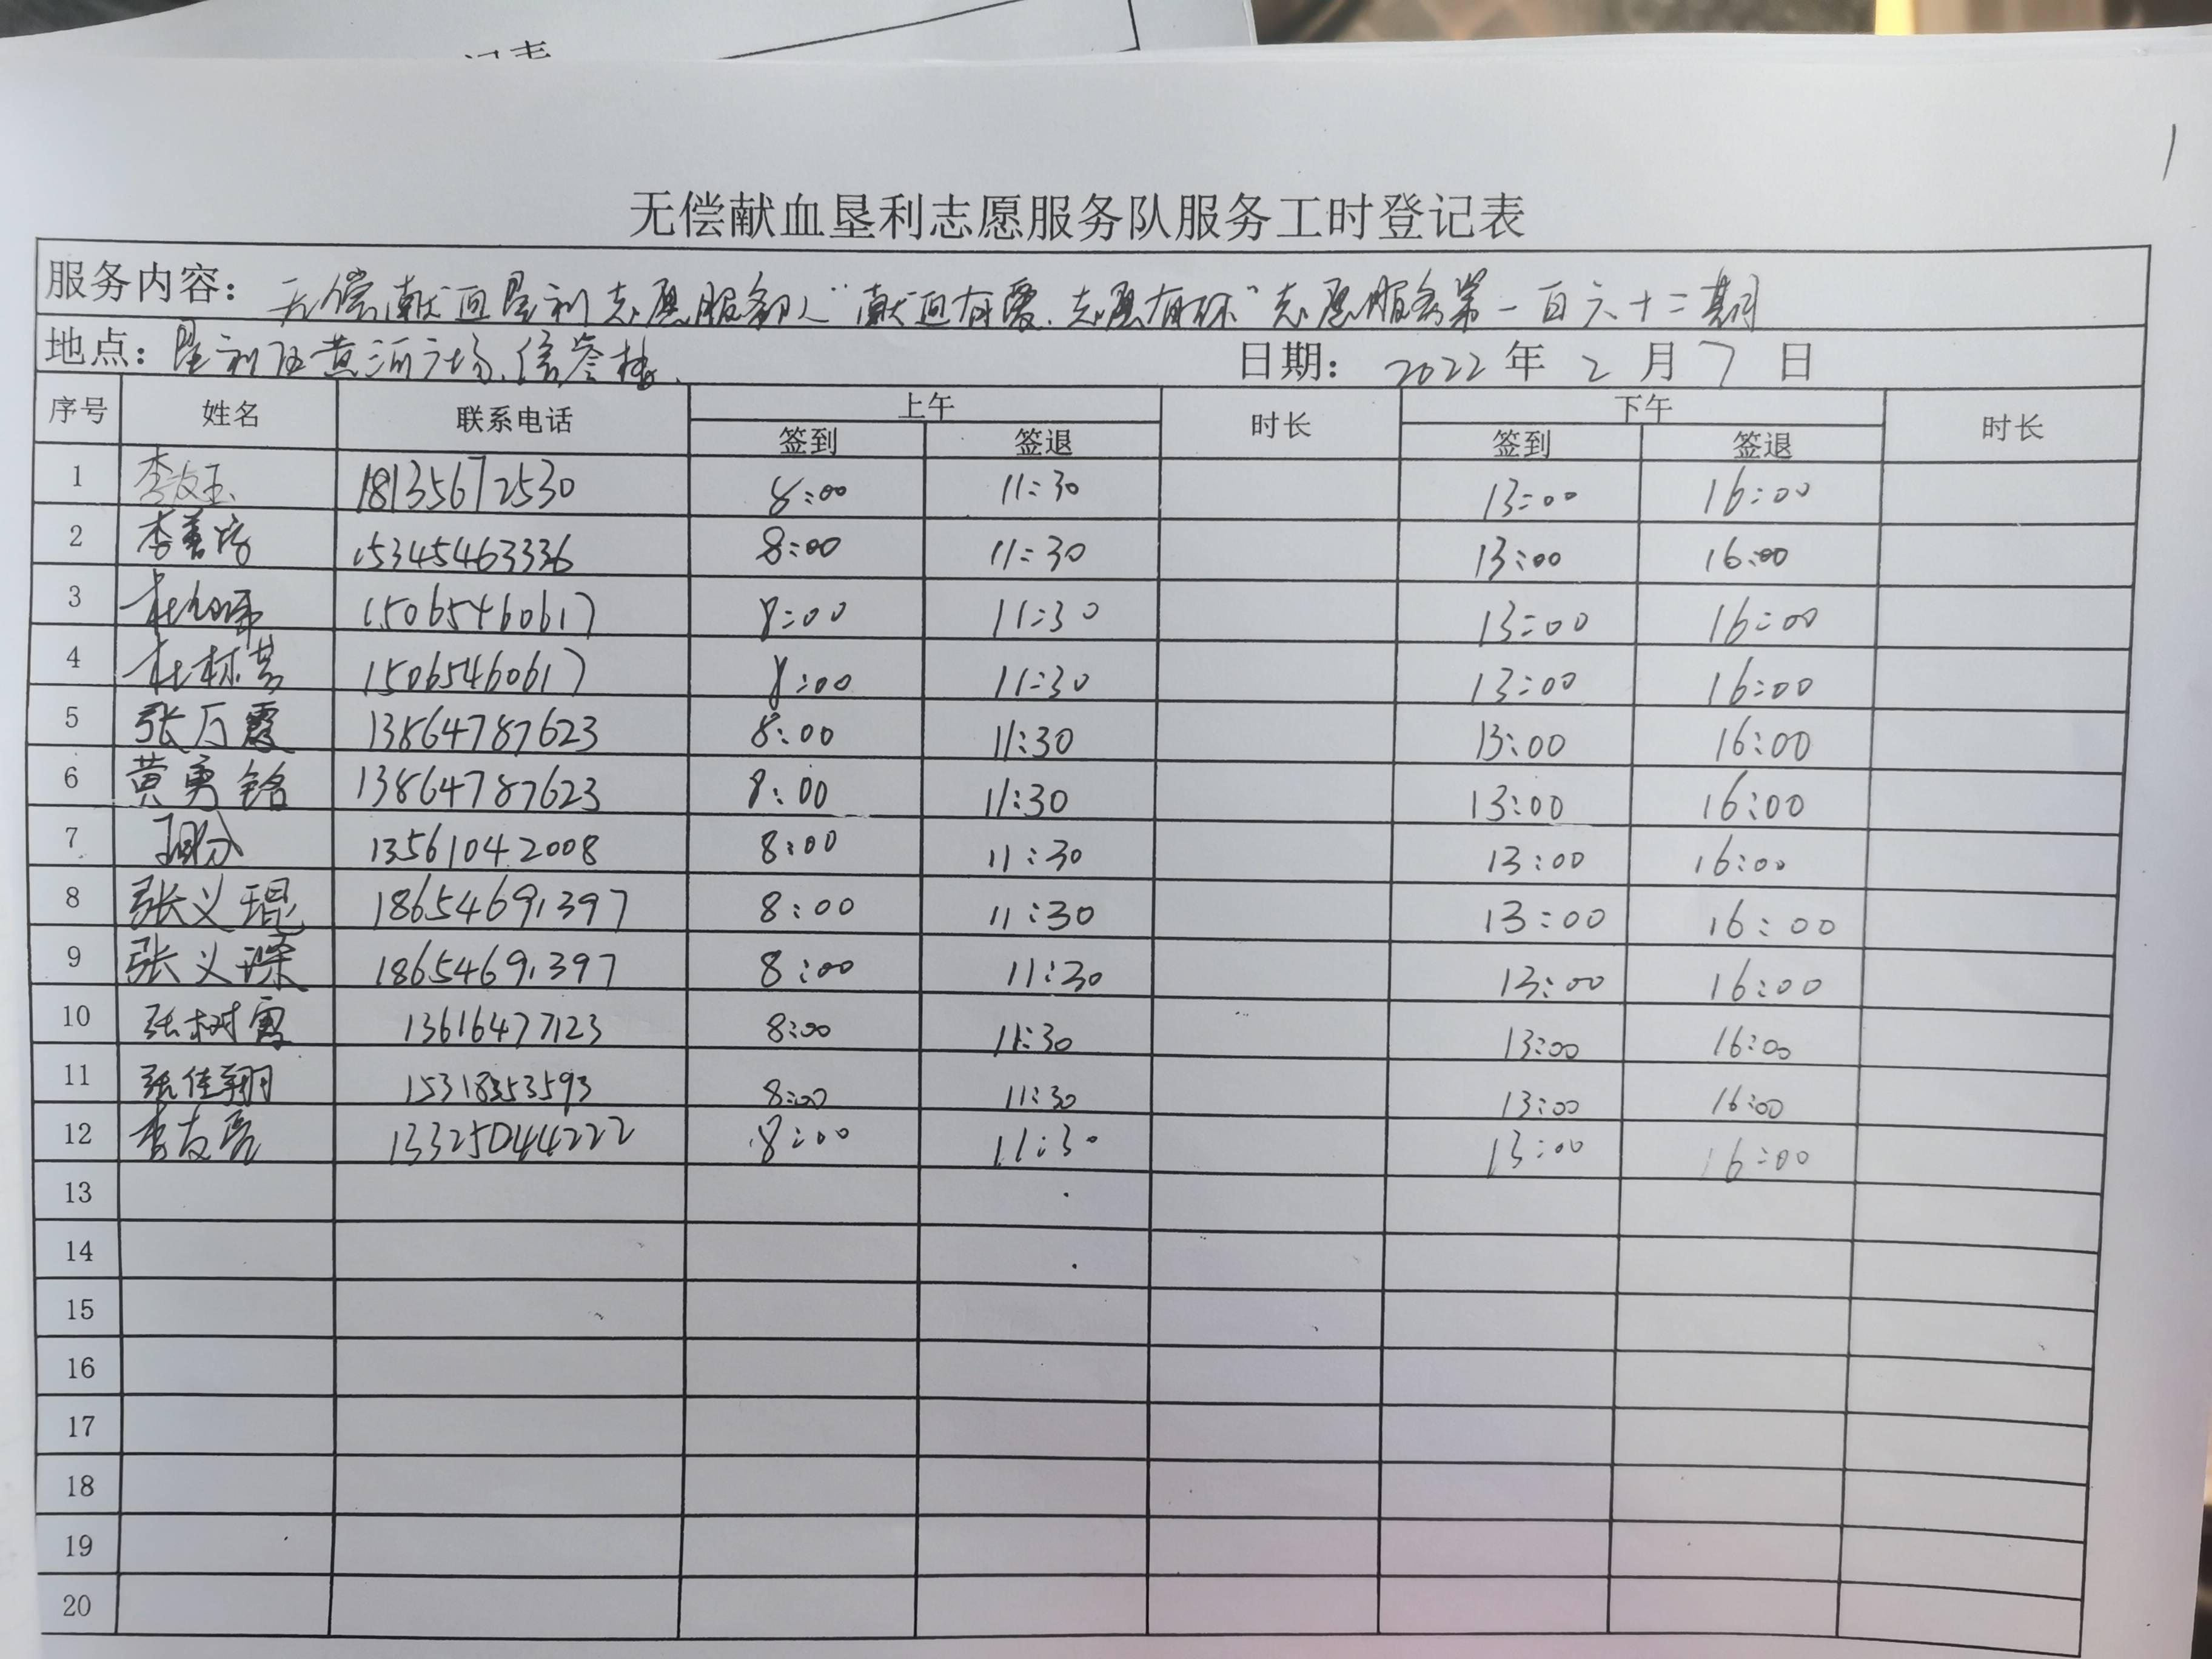 记表
无偿献血垦利志愿服务队服务工时登记表
服务内容：无偿献血垦利志愿服务队“献血有爱.志愿有你”志愿服务第一百六十二期
地点：垦利区黄河广场、信誉楼、 日期：2022年2月7日
序号 姓名 联系电话 上午 时长 下午 时长
签到 签退 签到 签退
1 李友玉 18135672530 8:00 11:30 13:00 16:00
2 李善 15345463336 8:00 11:30 13:00 16:00
3 杜 15065460617 8:00 11:30 13:00 16:00
4 杜林 15065460617 8:00 11:30 13:00 16:00
5 张万霞 13864787623 8:00 11:30 13:00 16:00
6 黄勇铭 13864787623 8:00 11:30 13:00 16:00
7 13561042008 8:00 11:30 13:00 16:00
8 张义琨 18654691397 8:00 11:30 13:00 16:00
9 张义琛 18654691397 8:00 11:30 13:00 16:00
10 张树霞 13616477123 8:00 11:30 13:00 16:00
11 张佳翔 15318353593 8:00 11:30 13:00 16:00
12 李友亮 13325044222 8:00 11:30 13:00 16:00
13
14
15
16
17
18
19
20